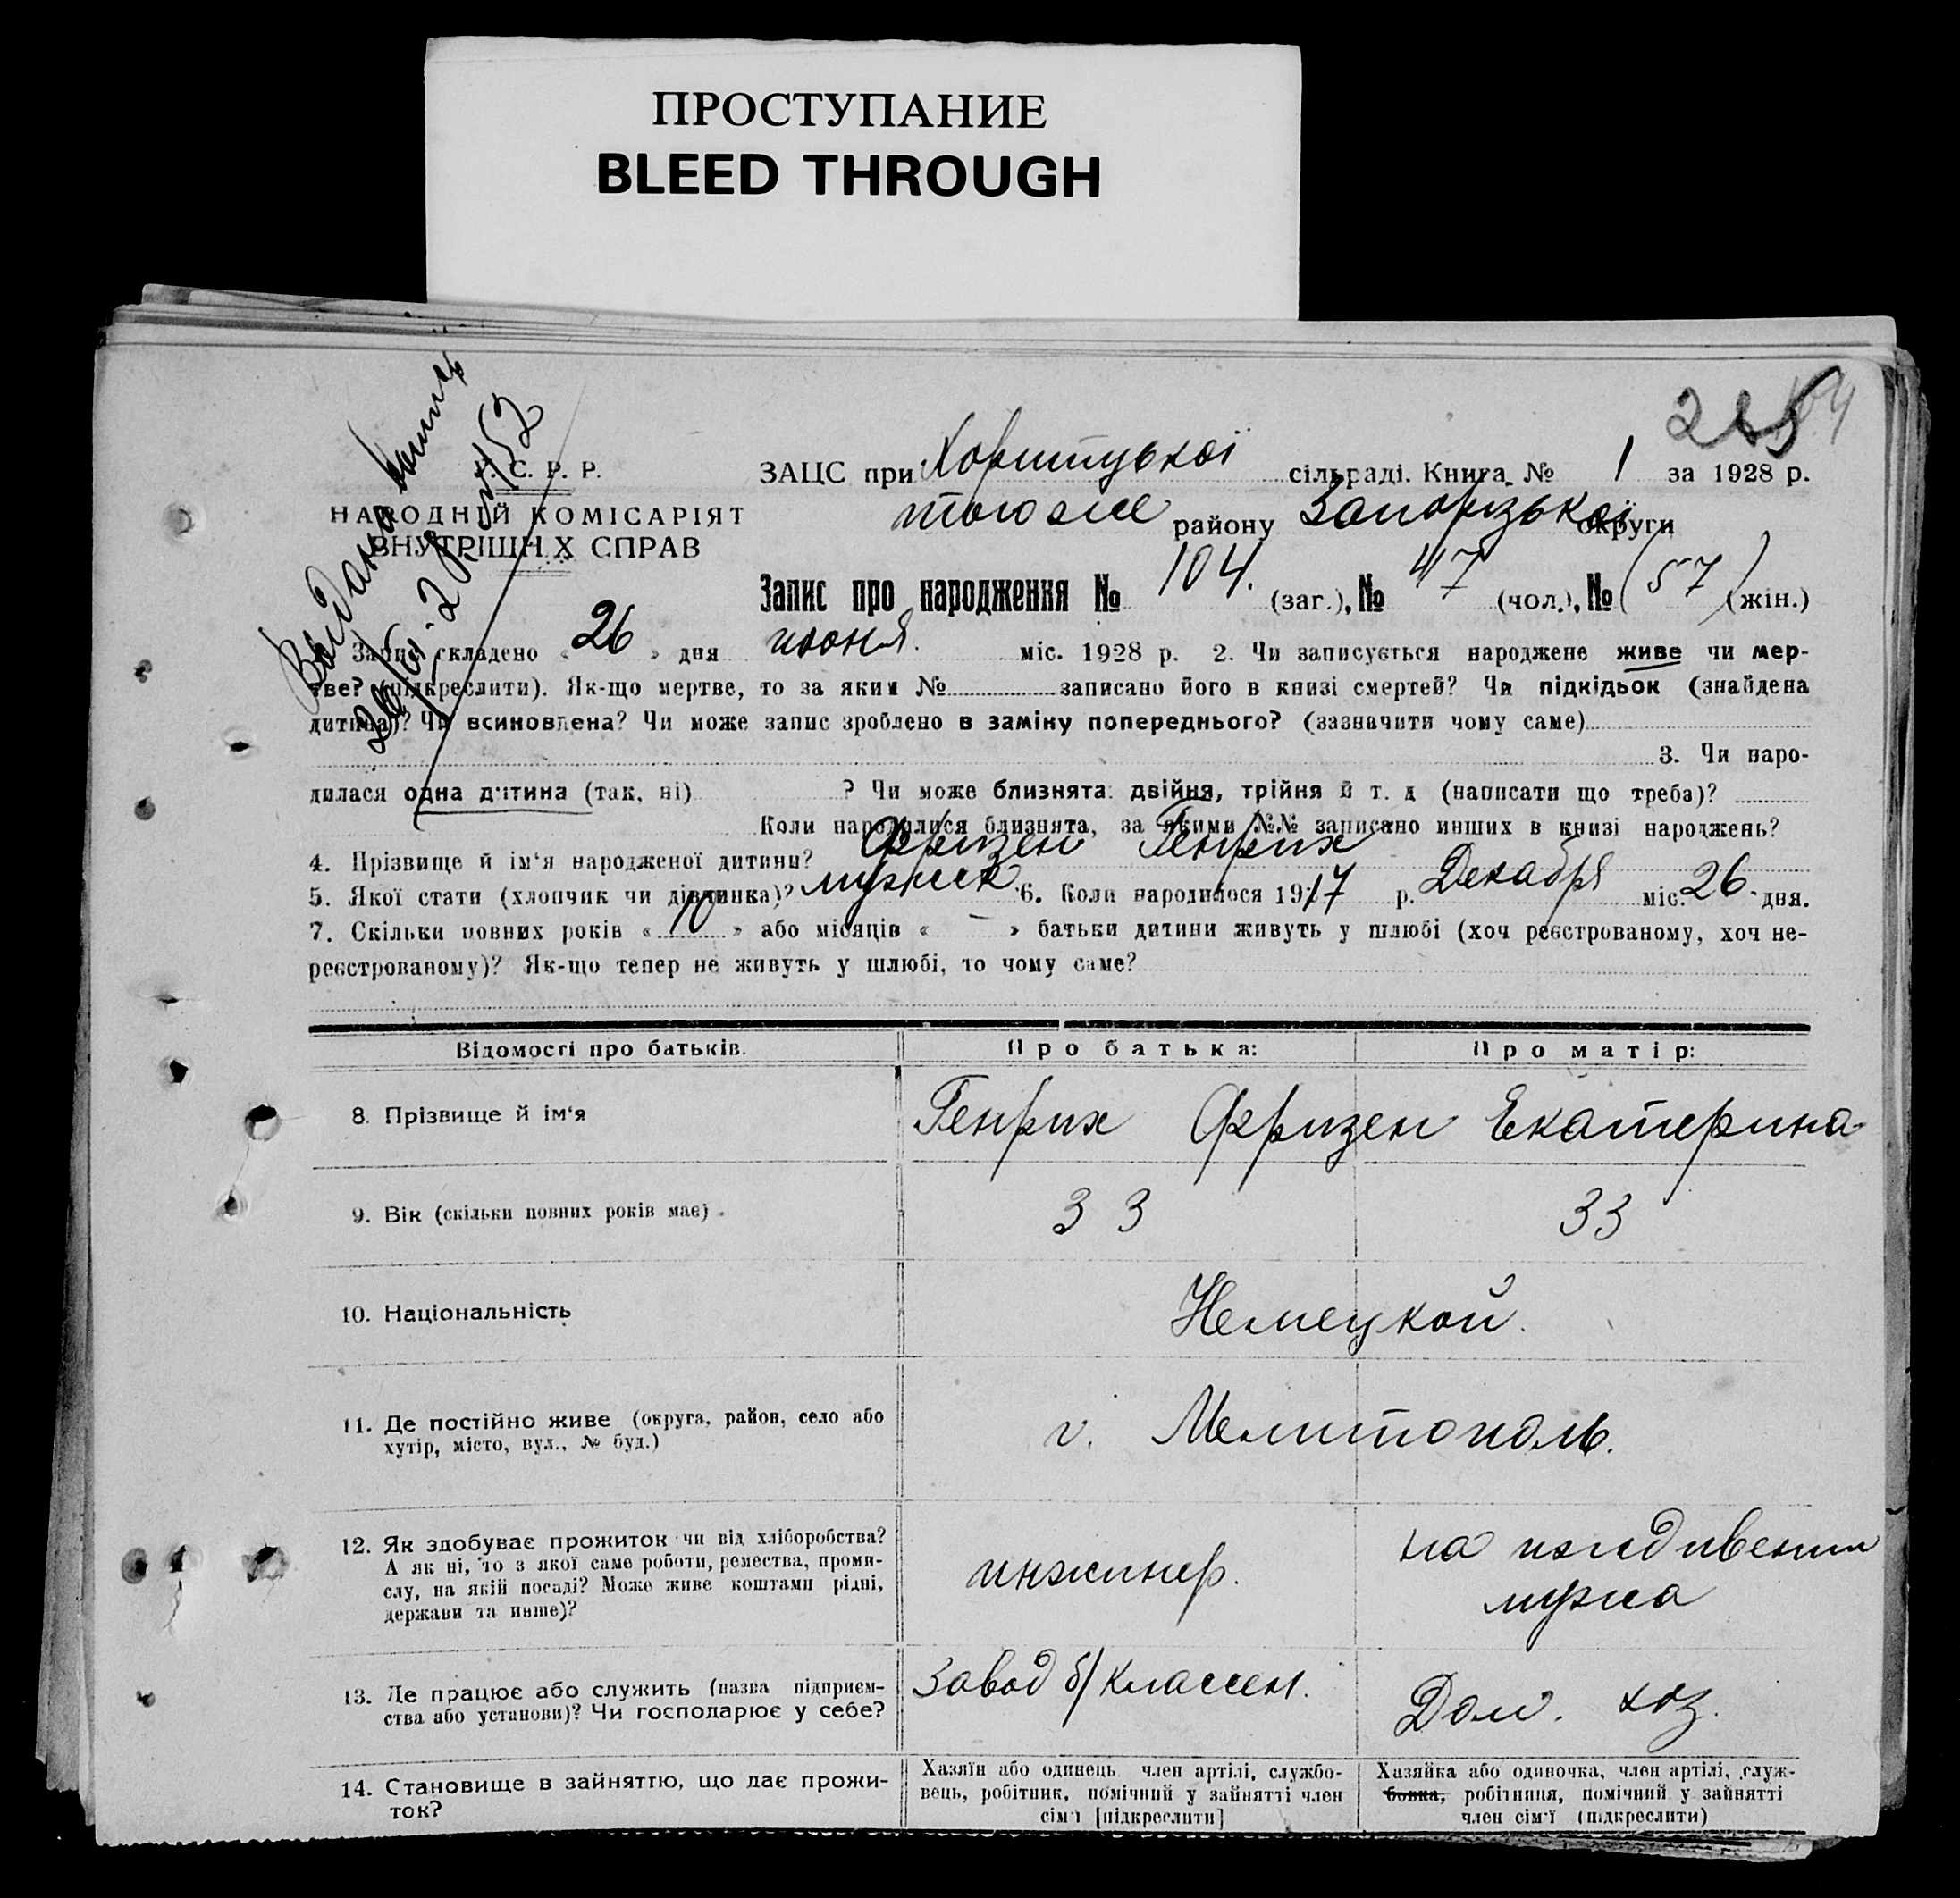 ПРОСТУПАНИЕ
BLEED THROUGH
Выдана
26/VI-
52
104
У. С. Р. Р.
НАРОДНІЙ КОМІСАРІЯТ
ВНУТРІШНІХ СПРАВ
ЗАЦС при Хортицької сільраді. Книга № 1 за 1928 р.
тогоже району Запорізької округи
Запис про народження № 104. (заг.), № 47 (чол.), № (57) (жін.)
Запис складено « 26 » дня июня. міс. 1928 р. 2. Чи записується народжене живе чи мер-
тве? (підкреслити). Як-що мертве, то за яким № записано його в книзі смертей? Чи підкідьок (знайдена
дитина)? Чи всиновлена? Чи може запис зроблено в заміну попереднього? (зазначити чому саме)
3. Чи наро-
дилася одна дитина (так, ні) ? Чи може близнята: двійня, трійня й т. д (написати що треба)?
Коли народилися близнята, за якими №№ записано инших в книзі народжень?
4. Прізвище й ім'я народженої дитини? Фризен Генрих
5. Якої стати (хлопчик чи дівчинка)? мужск. 6. Коли народилося 1917 р. Декабря міс. 26 дня.
7. Скільки повних років « 10 » або місяців « — » батьки дитини живуть у шлюбі (хоч реєстрованому, хоч не-
реєстрованому)? Як-що тепер не живуть у шлюбі, то чому саме?
Відомості про батьків. Про батька: Про матір:
8. Прізвище й ім'я Генрих Фризен Екатерина
9. Вік (скільки повних років має) 33 33
10. Національність Немецкой.
11. Де постійно живе (округа, район, село або
хутір, місто, вул., № буд.)
г. Мелитополь.
12. Як здобуває прожиток чи від хліборобства?
А як ні, то з якої саме роботи, ремества, проми-
слу, на якій посаді? Може живе коштами рідні,
держави та инше)?
инжинер.
на иждивении
мужа
13. Де працює або служить (назва підприєм-
ства або установи)? Чи господарює у себе?
Завод б/ Классен.
Дом. хоз.
14. Становище в зайняттю, що дає прожи-
ток?
Хазяїн або одинець член артілі, службо-
вець, робітник, помічний у зайнятті член
сім'ї [підкреслити]
Хазяйка або одиночка, член артілі, служ-
бовка, робітниця, помічний у зайнятті
член сім'ї (підкреслити)